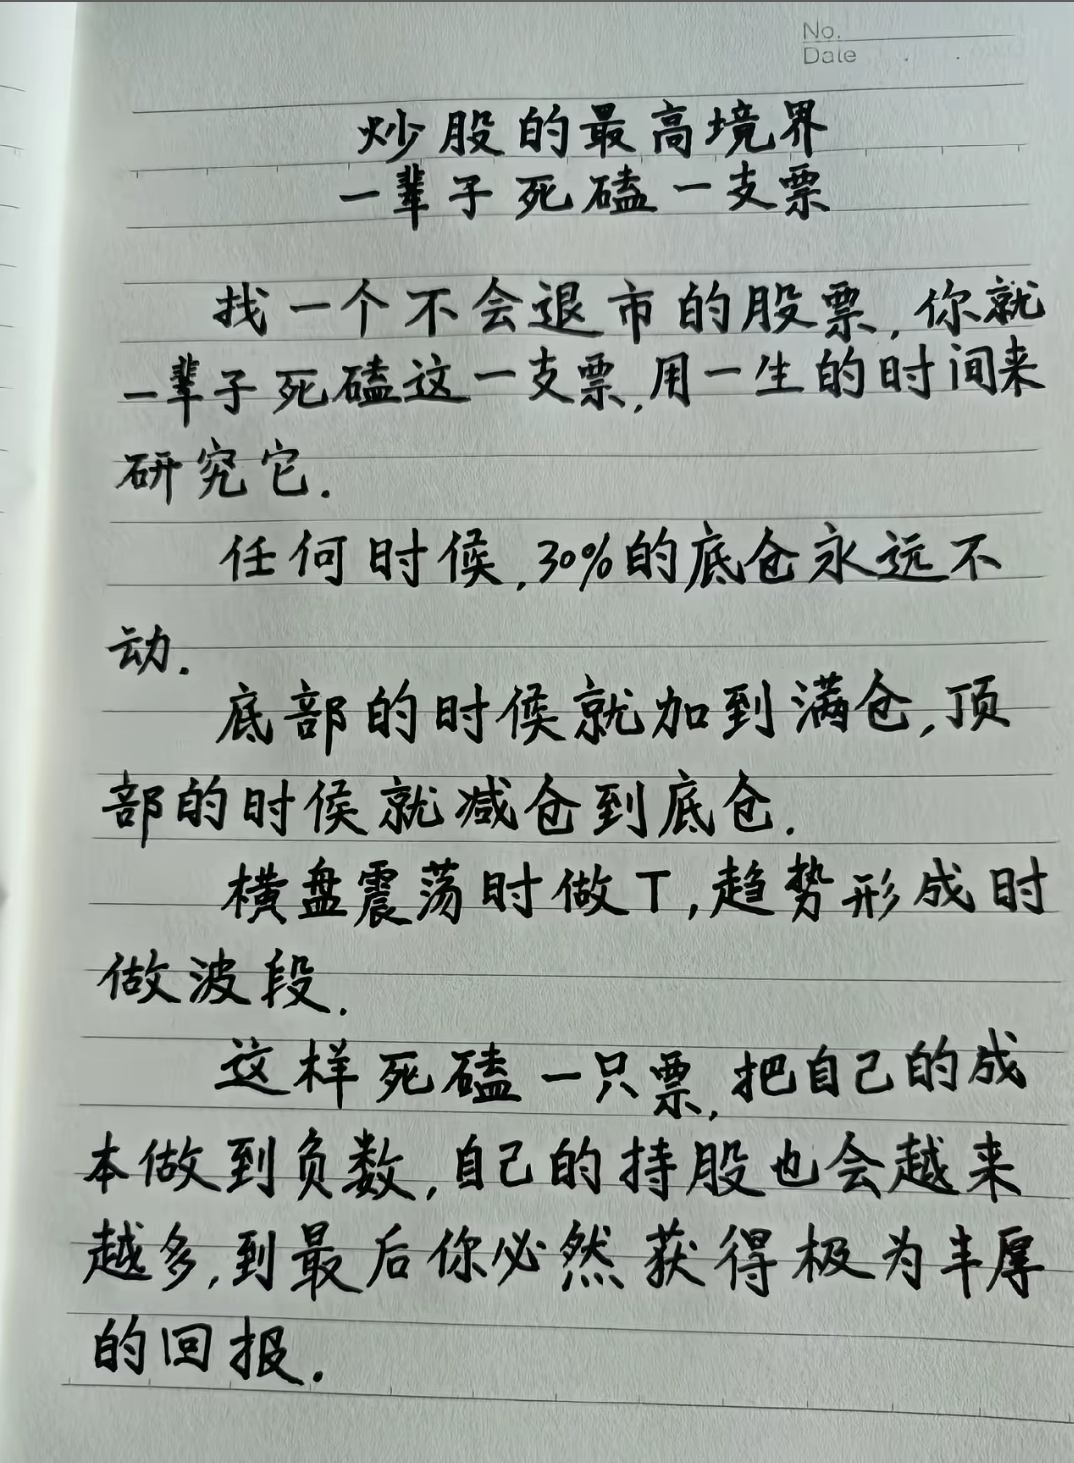 No.
Date
炒股的最高境界
一辈子死磕一支票
找一个不会退市的股票,你就
一辈子死磕这一支票,用一生的时间来
研究它.
任何时候,30%的底仓永远不
动.
底部的时候就加到满仓,顶
部的时候就减仓到底仓.
横盘震荡时做T,趋势形成时
做波段.
这样死磕一只票,把自己的成
本做到负数,自己的持股也会越来
越多,到最后你必然获得极为丰厚
的回报.